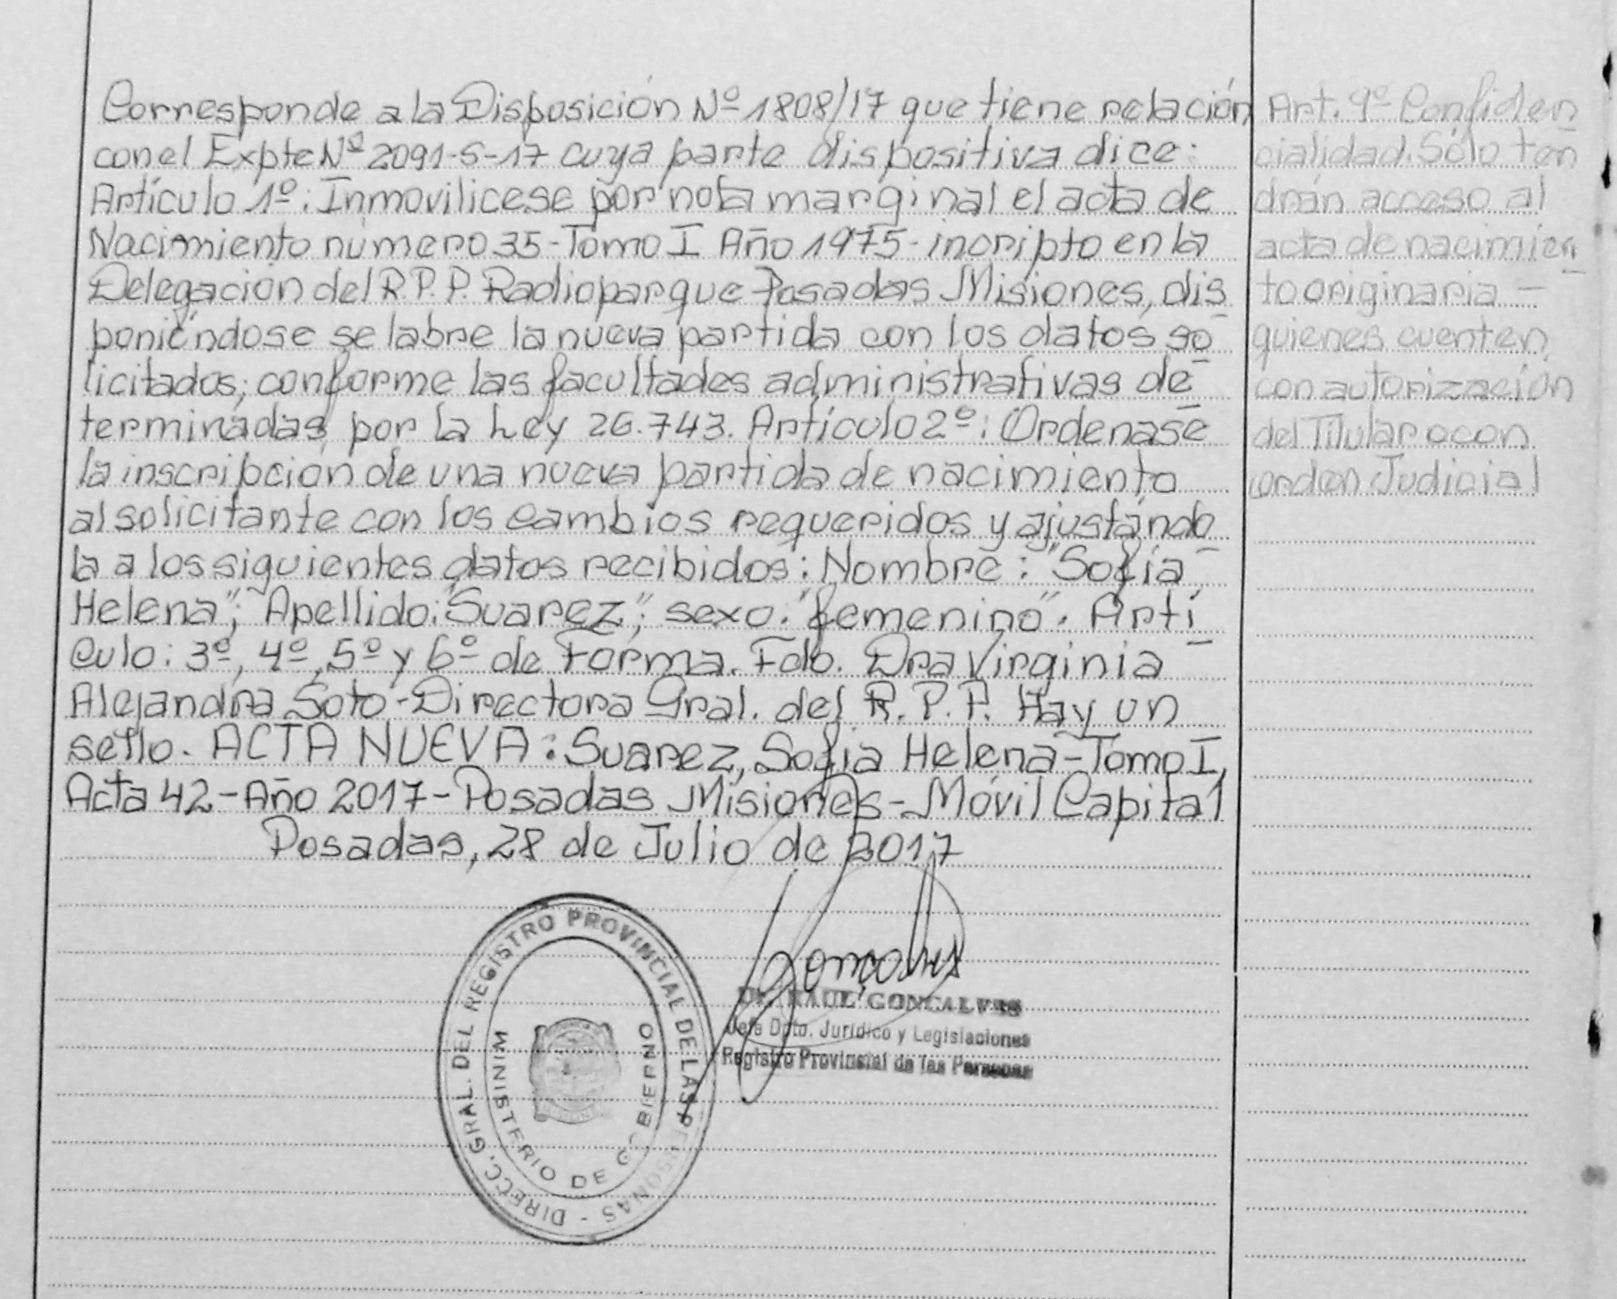 Corresponde a la Disposición Nº 1808/17 que tiene relación
con el Expte Nº 2091-S-17 cuya parte dispositiva dice:
Artículo 1º: Inmovilicese por nota marginal el acta de
Nacimiento número 35-Tomo I Año 1975-incripto en la
Delegación del R.P.P. Radioparque Posadas Misiones, dis
poniéndose se labre la nueva partida con los datos so
licitados; conforme las facultades administrativas de
terminadas por la Ley 26.743. Artículo 2º: Ordenase
la inscripcion de una nueva partida de nacimiento
al solicitante con los cambios requeridos y ajustándo
la a los siguientes datos recibidos: Nombre: "Sofía
Helena"; "Apellido: "Suarez"; sexo: "femenino". Artí
culo: 3º, 4º, 5º y 6º de Forma. Fdo. Dra Virginia
Alejandra Soto-Directora Gral. del R.P.P. Hay un
sello. ACTA NUEVA: Suarez, Sofia Helena-Tomo I,
Acta 42-Año 2017-Posadas Misiones-Móvil Capital
Posadas, 28 de Julio de 2017
Art. 9º Confiden
cialidad. Sólo ten
drán acceso al
acta de nacimien
to originaria -
quienes cuenten
con autorización
del Titular o con
orden Judicial
DIRECC. GRAL. DEL REGISTRO PROVINCIAL DE LAS PERSONAS -
MINISTERIO DE GOBIERNO
Goncalves
Dr. RAUL GONCALVES
Jefe Dpto. Jurídico y Legislaciones
Registro Provincial de las Personas